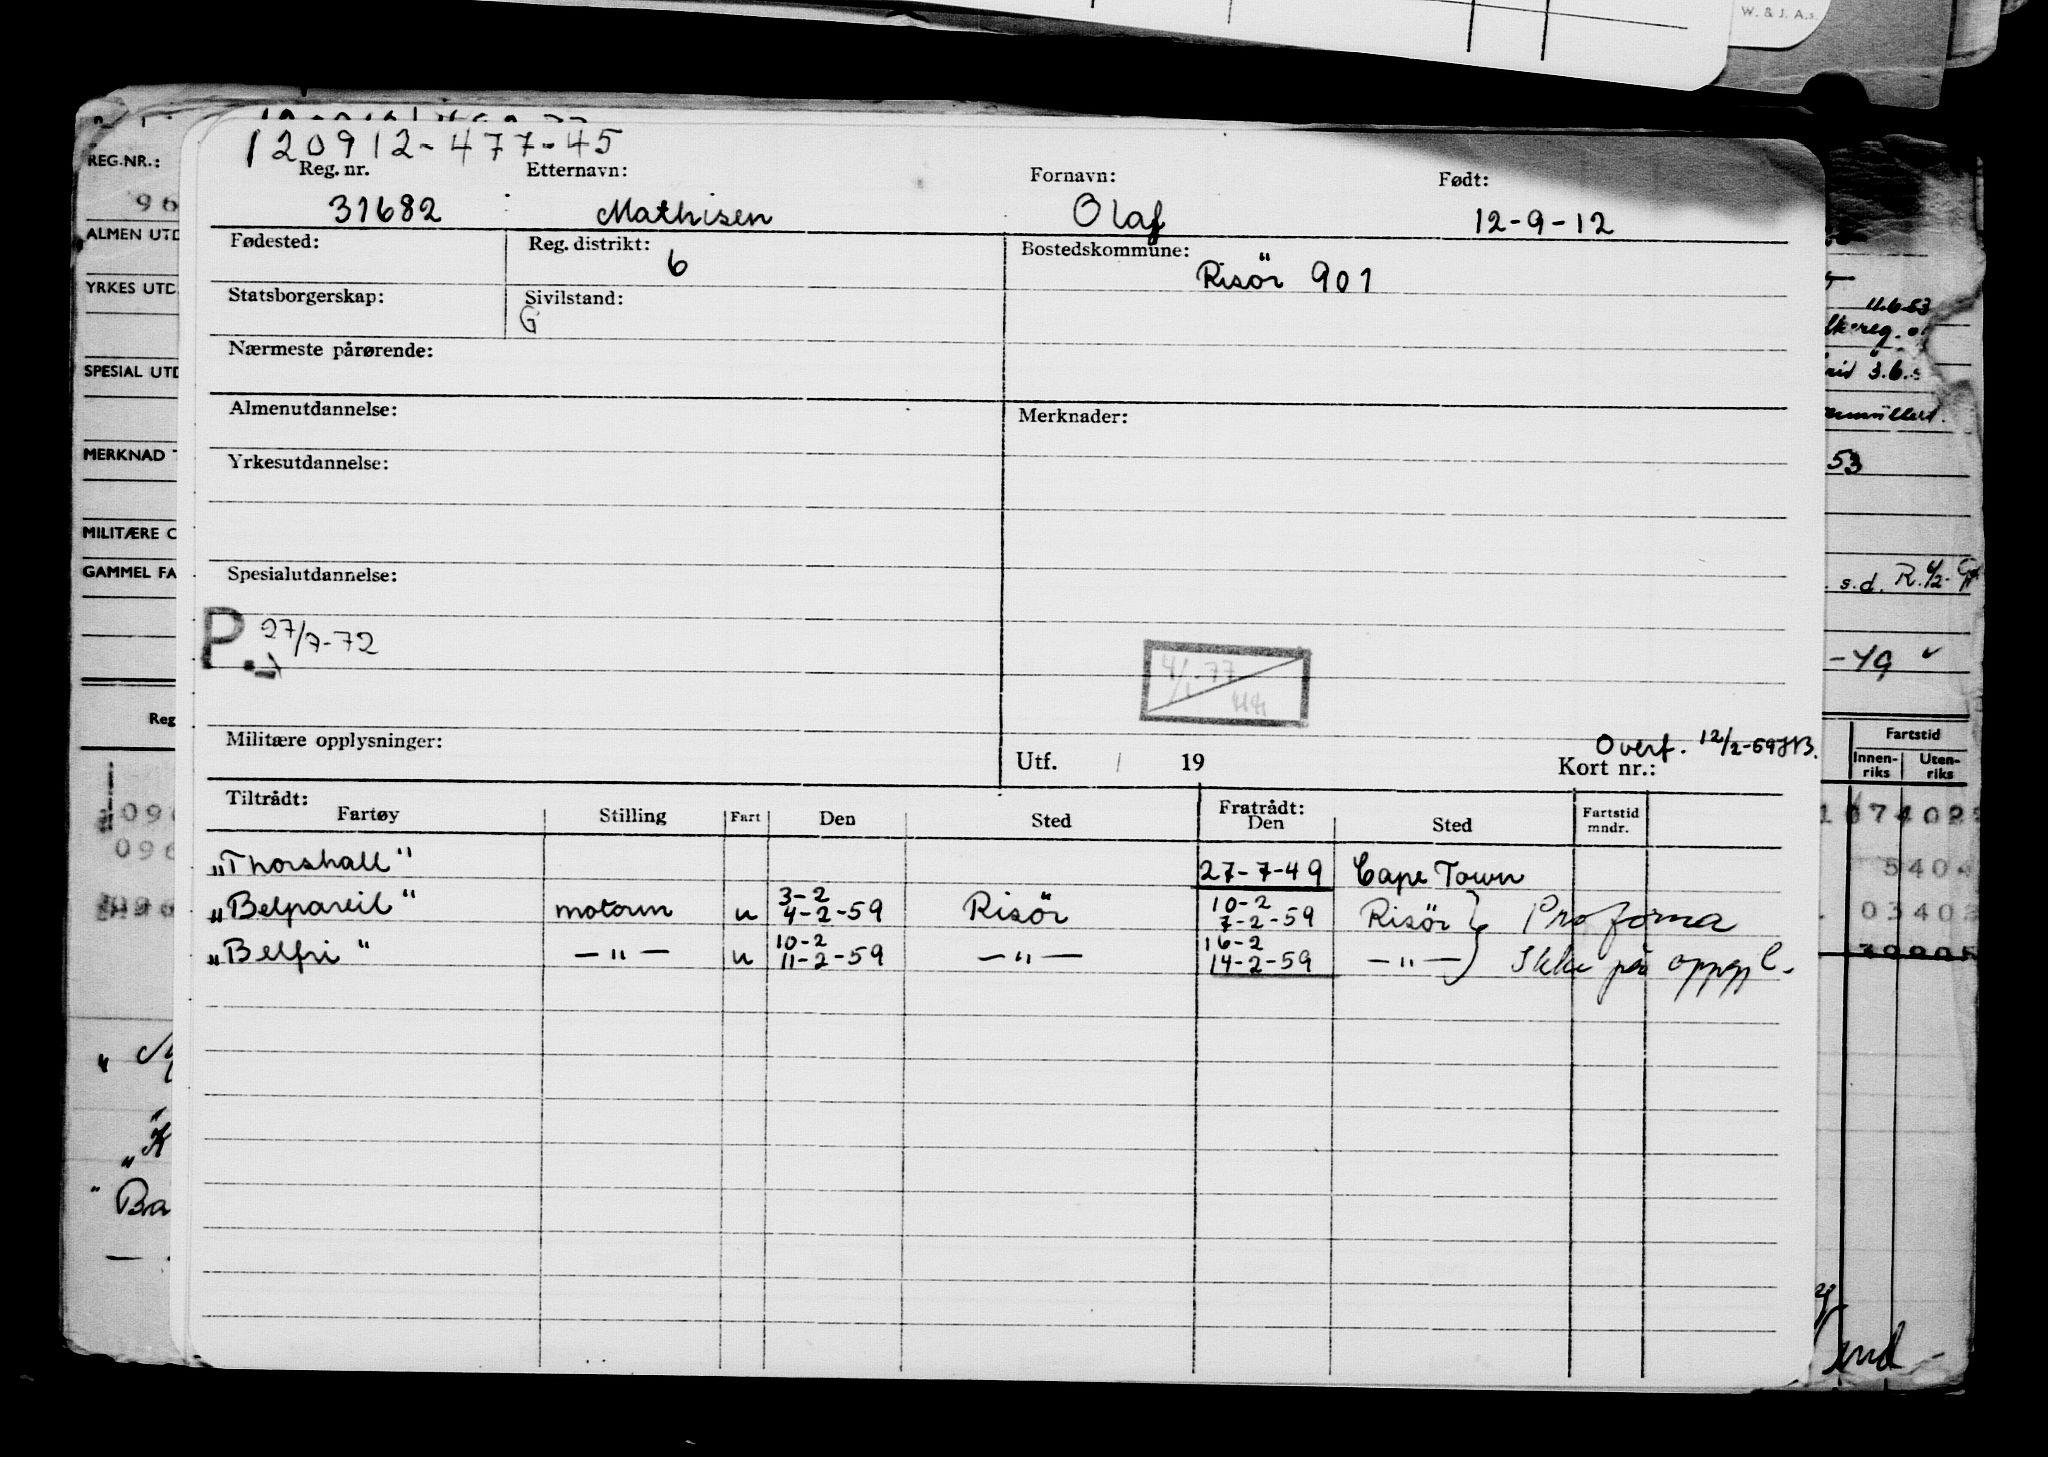 W. & J. A.s.
120912-477-45
Reg. nr. Etternavn: Fornavn: Født:
31682 Mathisen Olaf 12-9-12
Fødested: Reg. distrikt: 6 Bostedskommune: Risör 901
Statsborgerskap: Sivilstand: G
Nærmeste pårørende:
Almenutdannelse: Merknader:
Yrkesutdannelse:
Spesialutdannelse:
P. 27/7-72
4/1-77
Militære opplysninger: Utf. / 19 Overf. 12/2-69 Kort nr.:
Tiltrådt: Fratrådt:
Fartøy Stilling Fart Den Sted Den Sted Fartstid mndr.
„Thorshall" 27-7-49 Cape Town
„Belpareil" motorm u 3-2 4-2-59 Risör 10-2 7-2-59 Risör } Proforma
„Belfri" —"— u 10-2 11-2-59 —"— 16-2 14-2-59 —"— } Ikke på oppgj
REG.NR.:
96
ALMEN UTD
YRKES UTD
SPESIAL UTD
MERKNAD
MILITÆRE O
GAMMEL FA
Reg
096
096
„K
" Ba
11.6.53
53
s.d. R.
-49
Fartstid
Innen-riks Uten-riks
5404